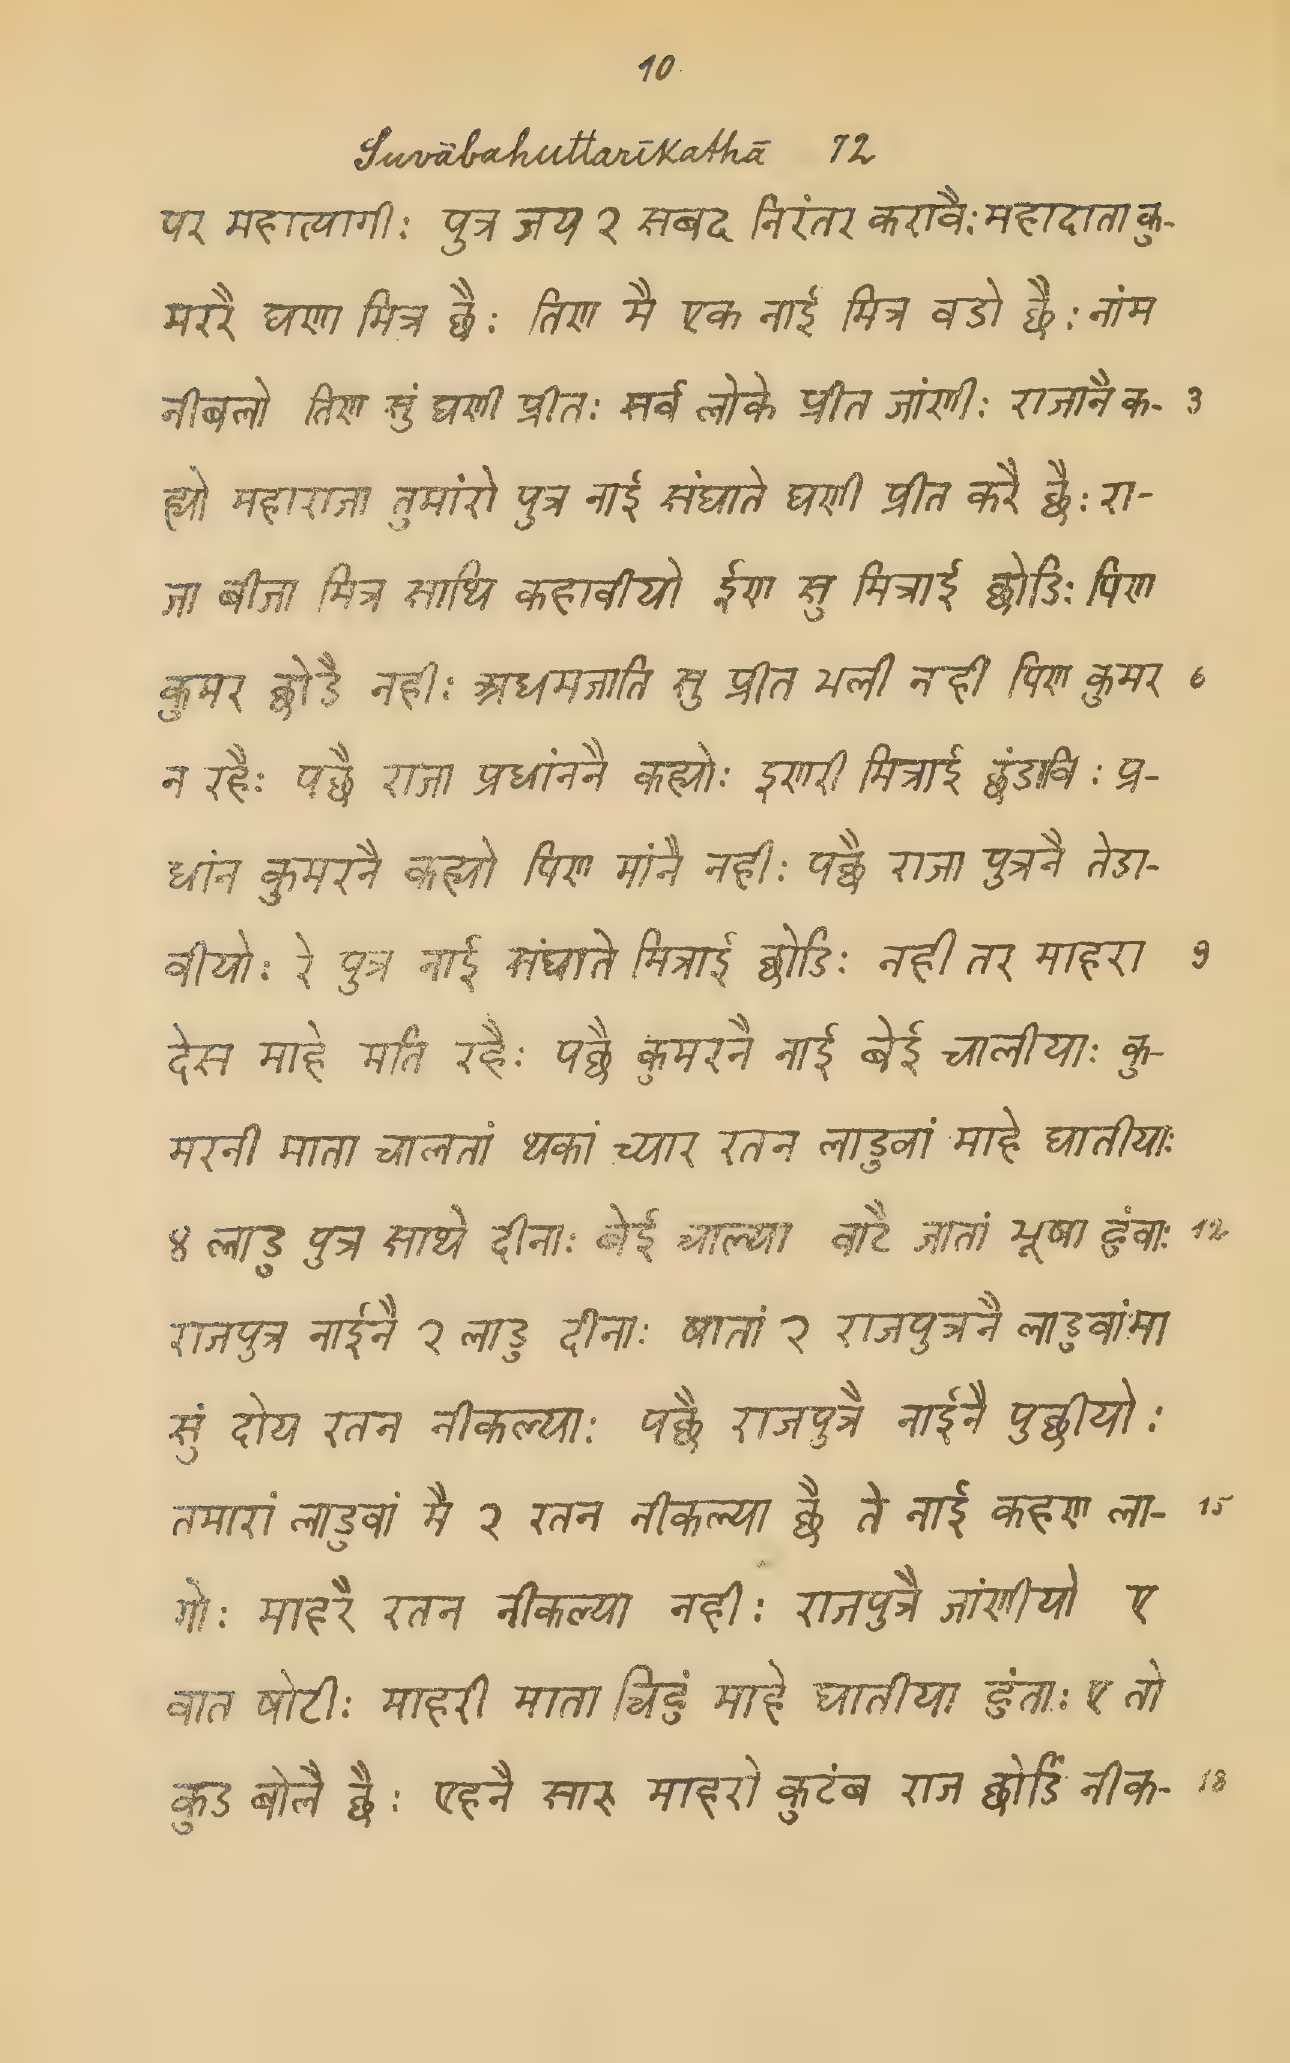 10
Suvābahuttarīkathā 72
पर महात्यागी: पुत्र जय २ सबद निरंतर करावै: महादाता कु-
मररै घणा मित्र छै: तिण मै एक नाई मित्र वडो छै: नांम
नीबलो तिण सुं घणी प्रीत: सर्व लोके प्रीत जांणी: राजानै क- 3
ह्यो महाराजा तुमांरो पुत्र नाई संघाते घणी प्रीत करै छै: रा-
जा बीजा मित्र साथि कहावीयो ईण सु मित्राई छोडि: पिण
कुमर छोडै नही: अधमजाति सु प्रीत भली नही पिण कुमर 6
न रहै: पछै राजा प्रधांननै कह्यो: इणरी मित्राई छंडावि: प्र-
धांन कुमरनै कह्यो पिण मांनै नही: पछै राजा पुत्रनै तेडा-
वीयो: रे पुत्र नाई संघाते मित्राई छोडि: नही तर माहरा 9
देस माहे मति रहै: पछै कुमरनै नाई बेई चालीया: कु-
मरनी माता चालतां थकां च्यार रतन लाडुवां माहे घातीया:
४ लाडु पुत्र साथे दीना: बेई चाल्या वाटै जातां भूषा हुंवा: 12
राजपुत्र नाईनै २ लाडु दीना: षातां २ राजपुत्रनै लाडुवांमा
सुं दोय रतन नीकल्या: पछै राजपुत्रै नाईनै पुछीयो:
तमारां लाडुवां मै २ रतन नीकल्या छै ते नाई कहण ला- 15
गो: माहरै रतन नीकल्या नही: राजपुत्रै जांणीयो ए
वात षोटी: माहरी माता बिहुं माहे घातीया हुंता: ए तो
कुड बोलै छै: एहनै सारु माहरो कुटंब राज छोडि नीक- 18